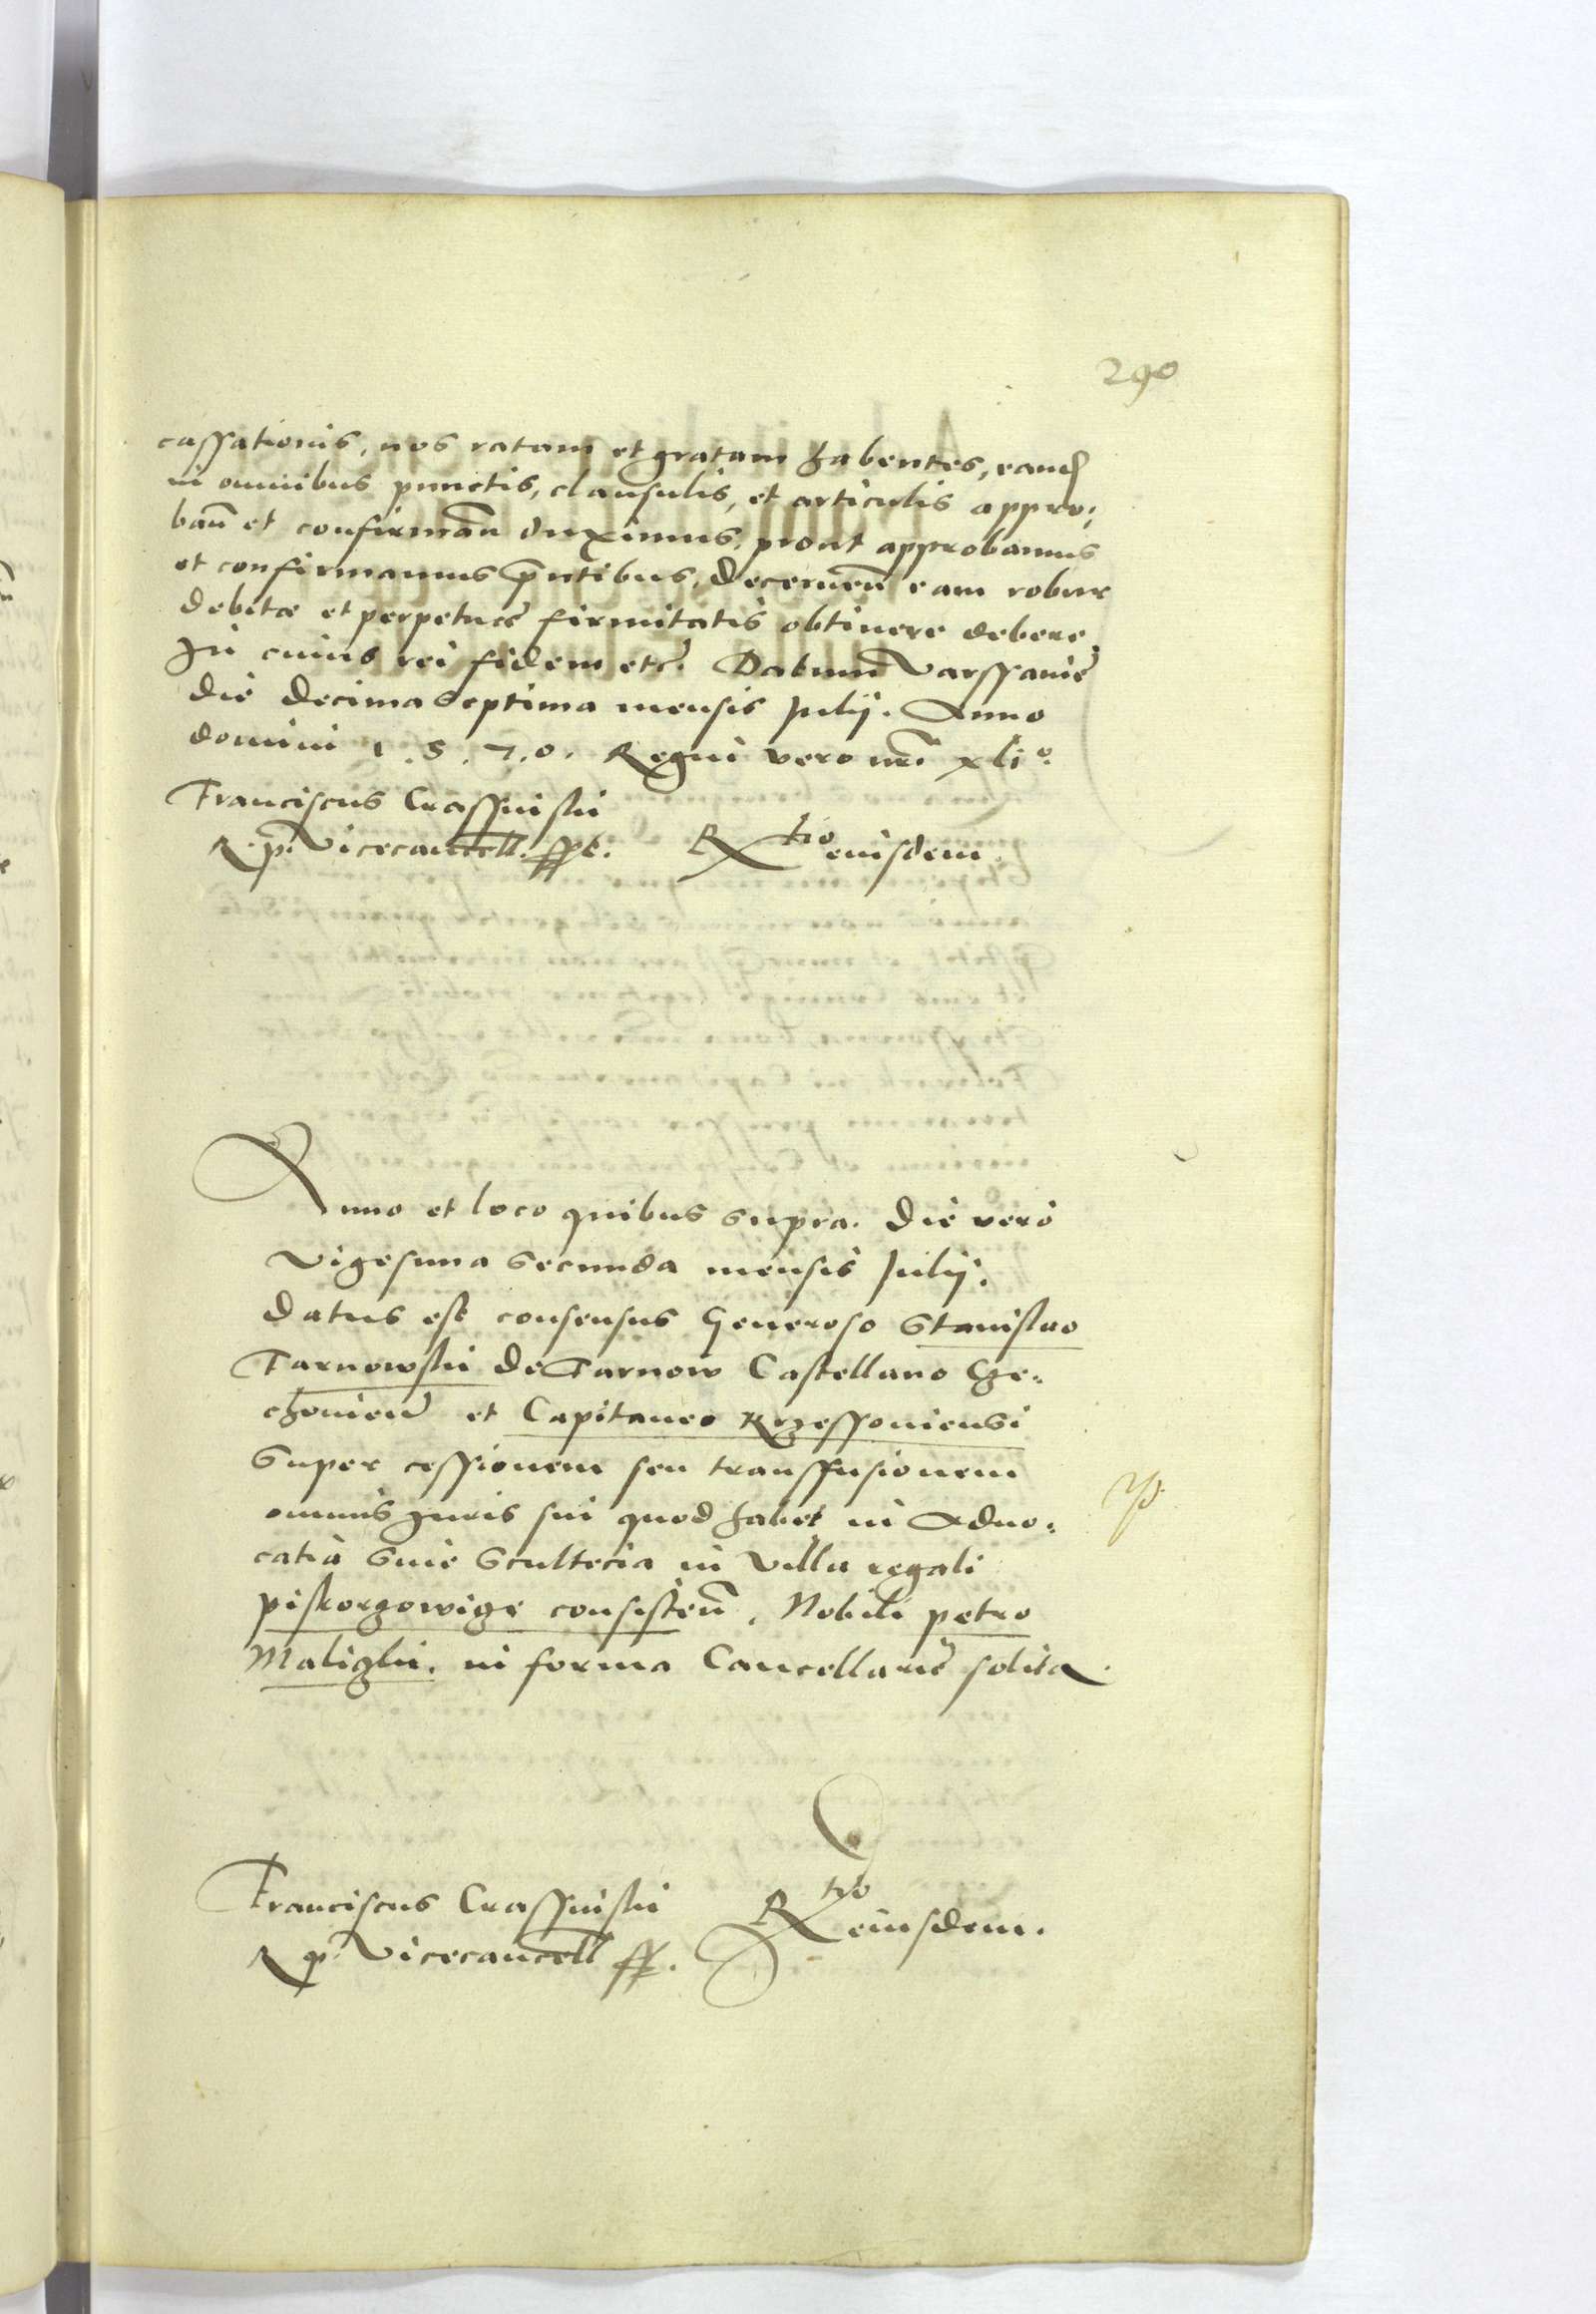 290
cassationis, nos ratam et gratam habentes, eand
in omnibus punctis, clausulis, et articulis appro:
bañ et confirmañ duximus, prout approbamus
et confirmamus pñtibus, decerneñ eam robur
debitæ et perpetuæ firmitatis obtinere debere.
In cuius rei fidem etc. Datum Varssaviæ
die decima Septima mensis Julij. Anno
domini 1.5.7.0. Regni vero nri xli°.
Franciscus Crassinski
R. p. Vicecancell. sst. Rtio eiusdem.
Anno et loco quibus supra. Die vero
Vigesima Secunda mensis Julij.
Datus est consensus Generoso Stanislao
Tarnowski de Tarnow Castellano Cze:
choviens et Capitaneo Rzessoviensi
Super cessionem seu transfusionem
omnis Juris sui quod habet in Advo:
catia Sive Scultecia in Villa regali
piskorzowize consisteñ, Nobili petro
Malizki. in forma Cancellariæ solita.
Franciscus Crassinski
R p. Vicecancell ss. Rtio eiusdem.